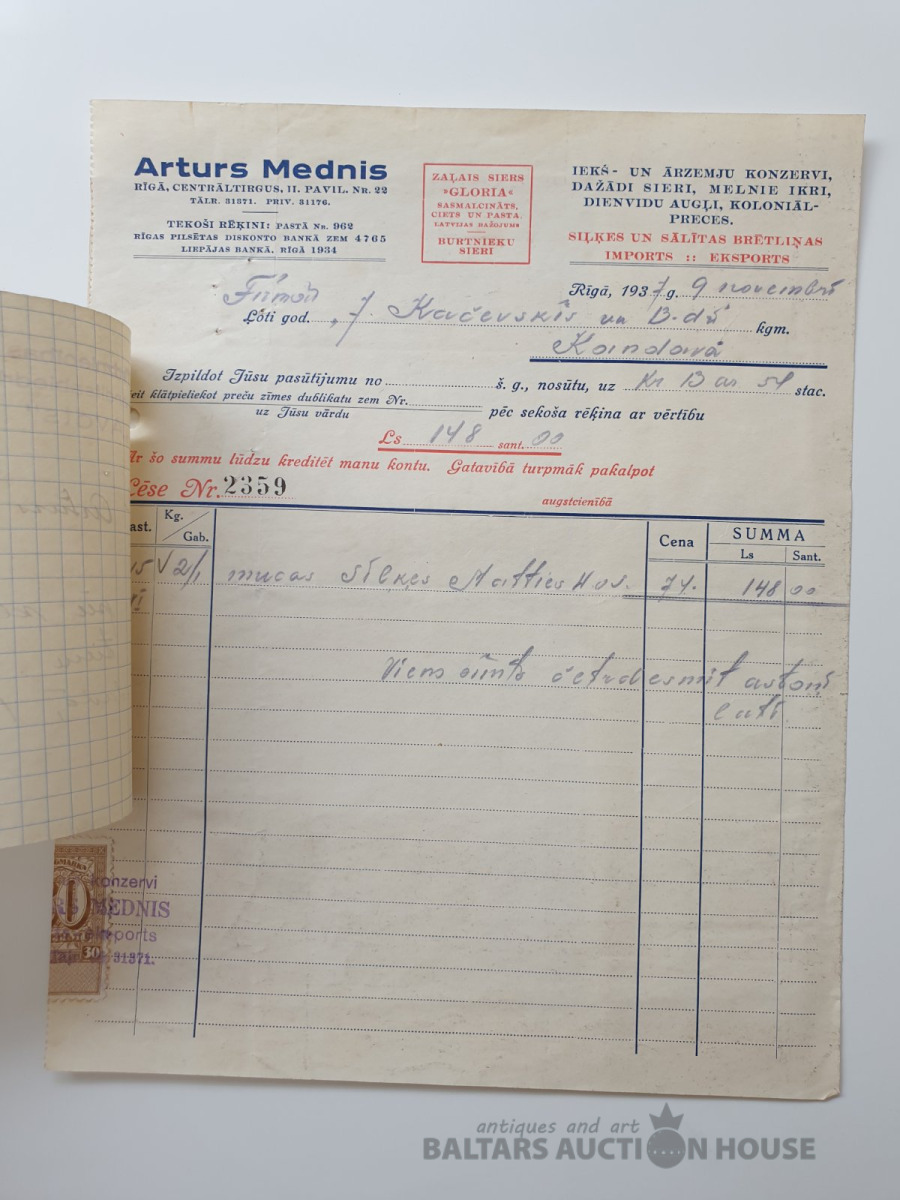 Arturs Mednis
RĪGĀ, CENTRĀLTIRGUS, II. PAVIL. NR. 22
TĀLR. 31371. PRIV. 31176.
TEKOŠI RĒĶINI: PASTĀ NR. 962
RĪGAS PILSĒTAS DISKONTO BANKĀ ZEM 4765
LIEPĀJAS BANKĀ, RĪGĀ 1934
ZAĻAIS SIERS
»GLORIA«
SASMALCINĀTS,
CIETS UN PASTA
LATVIJAS RAŽOJUMS
BURTNIEKU
SIERI
IEKŠ- UN ĀRZEMJU KONZERVI,
DAŽĀDI SIERI, MELNIE IKRI,
DIENVIDU AUGĻI, KOLONIĀL-
PRECES.
SIĻĶES UN SĀLĪTAS BRĒTLIŅAS
IMPORTS :: EKSPORTS
Rīgā, 1937 g. 9 novembrī
Firmai
Ļoti god. J. Kačevskis un B-dr kgm.
Kandavā
Izpildot Jūsu pasūtijumu no š. g., nosūtu, uz stac.
eit klātpieliekot preču zīmes dublikatu zem Nr.
uz Jūsu vārdu
pēc sekoša rēķina ar vērtību
Ls 148 sant. 00
Ar šo summu lūdzu kreditēt manu kontu. Gatavībā turpmāk pakalpot
augstcienībā
Cēse Nr. 2359
ast. Kg. Gab. Cena SUMMA
Ls Sant.
15 V 2/1 mucas Siļķes Matties 74. 148 00
Viens simts četrdesmit astoņi
lati
konzervi
RS MEDNIS
eksports
31371.
30
antiques and art
BALTARS AUCTION HOUSE